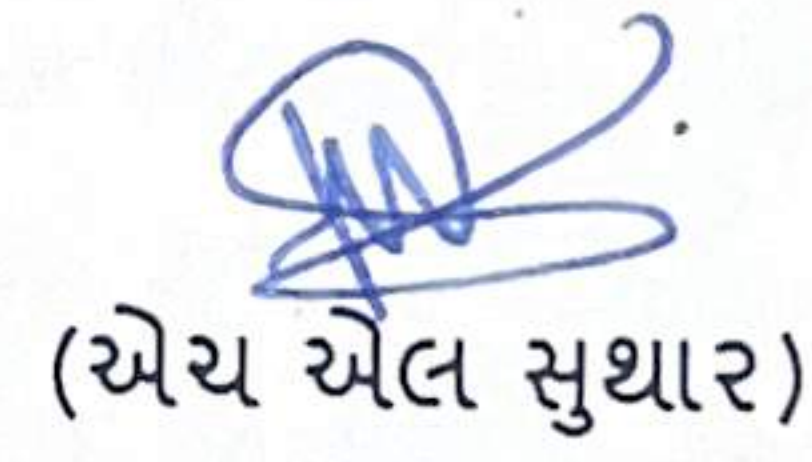 (એચ એલ સુથાર)